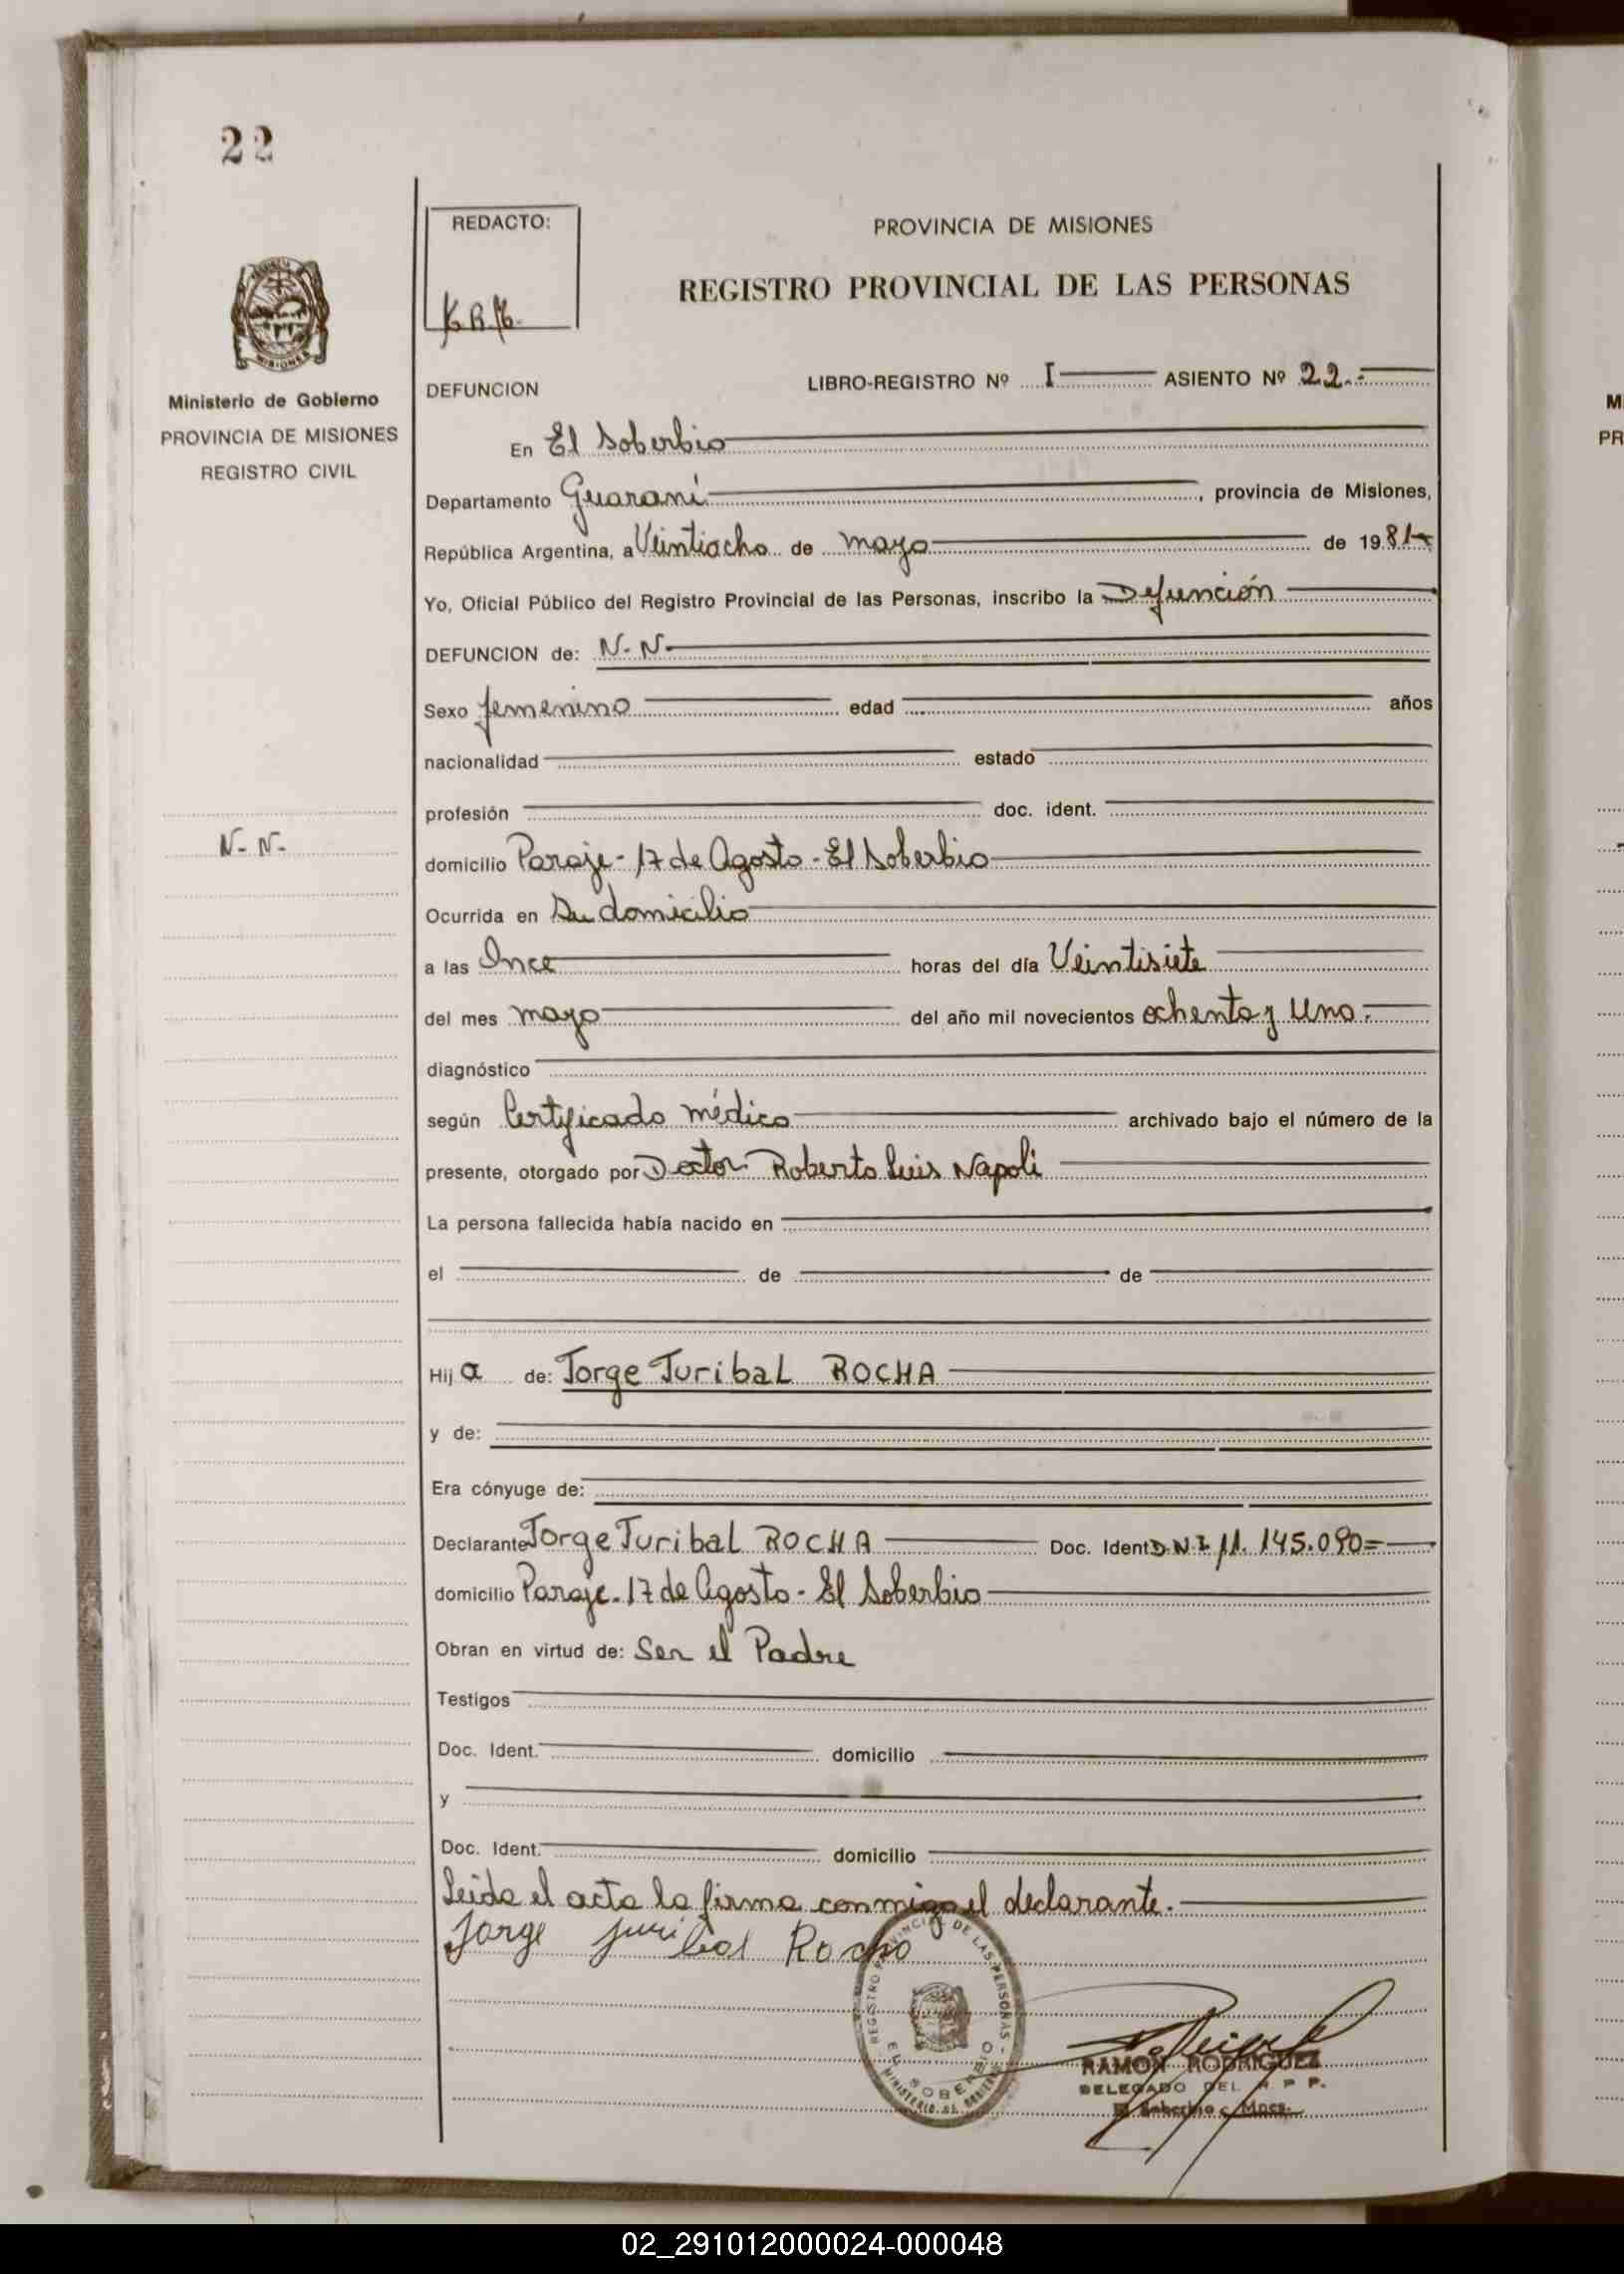 22
REDACTO:
PROVINCIA DE MISIONES
REGISTRO PROVINCIAL DE LAS PERSONAS
Ministerio de Gobierno
PROVINCIA DE MISIONES
REGISTRO CIVIL
DEFUNCION LIBRO-REGISTRO Nº I ASIENTO Nº 22.-
En El Soberbio
Departamento Guaraní, provincia de Misiones,
República Argentina, a Veintiocho de mayo de 1981
Yo, Oficial Público del Registro Provincial de las Personas, inscribo la Defunción
DEFUNCION de: N. N.
Sexo femenino edad años
nacionalidad estado
profesión doc. ident.
N- N-
domicilio Paraje - 17 de Agosto - El Soberbio
Ocurrida en Su domicilio
a las Once horas del día Veintisiete
del mes mayo del año mil novecientos ochenta y Uno.-
diagnóstico
según Certificado médico archivado bajo el número de la
presente, otorgado por Doctor Roberto Luis Napoli
La persona fallecida había nacido en
el de de
Hija de: Jorge Turibal ROCHA
y de:
Era cónyuge de:
Declarante Jorge Turibal ROCHA Doc. Ident D.N.I 11.145.090=
domicilio Paraje - 17 de Agosto - El Soberbio
Obran en virtud de: Ser el Padre
Testigos
Doc. Ident. domicilio
y
Doc. Ident. domicilio
Leida el acta la firma conmigo el declarante.-
Jorge Rocha
REGISTRO PROVINCIAL DE LAS PERSONAS - MINISTERIO DE GOBIERNO
EL SOBERBIO
RAMON RODRIGUEZ
DELEGADO DEL R P P.
El Soberbio - Mnes.
02_291012000024-000048